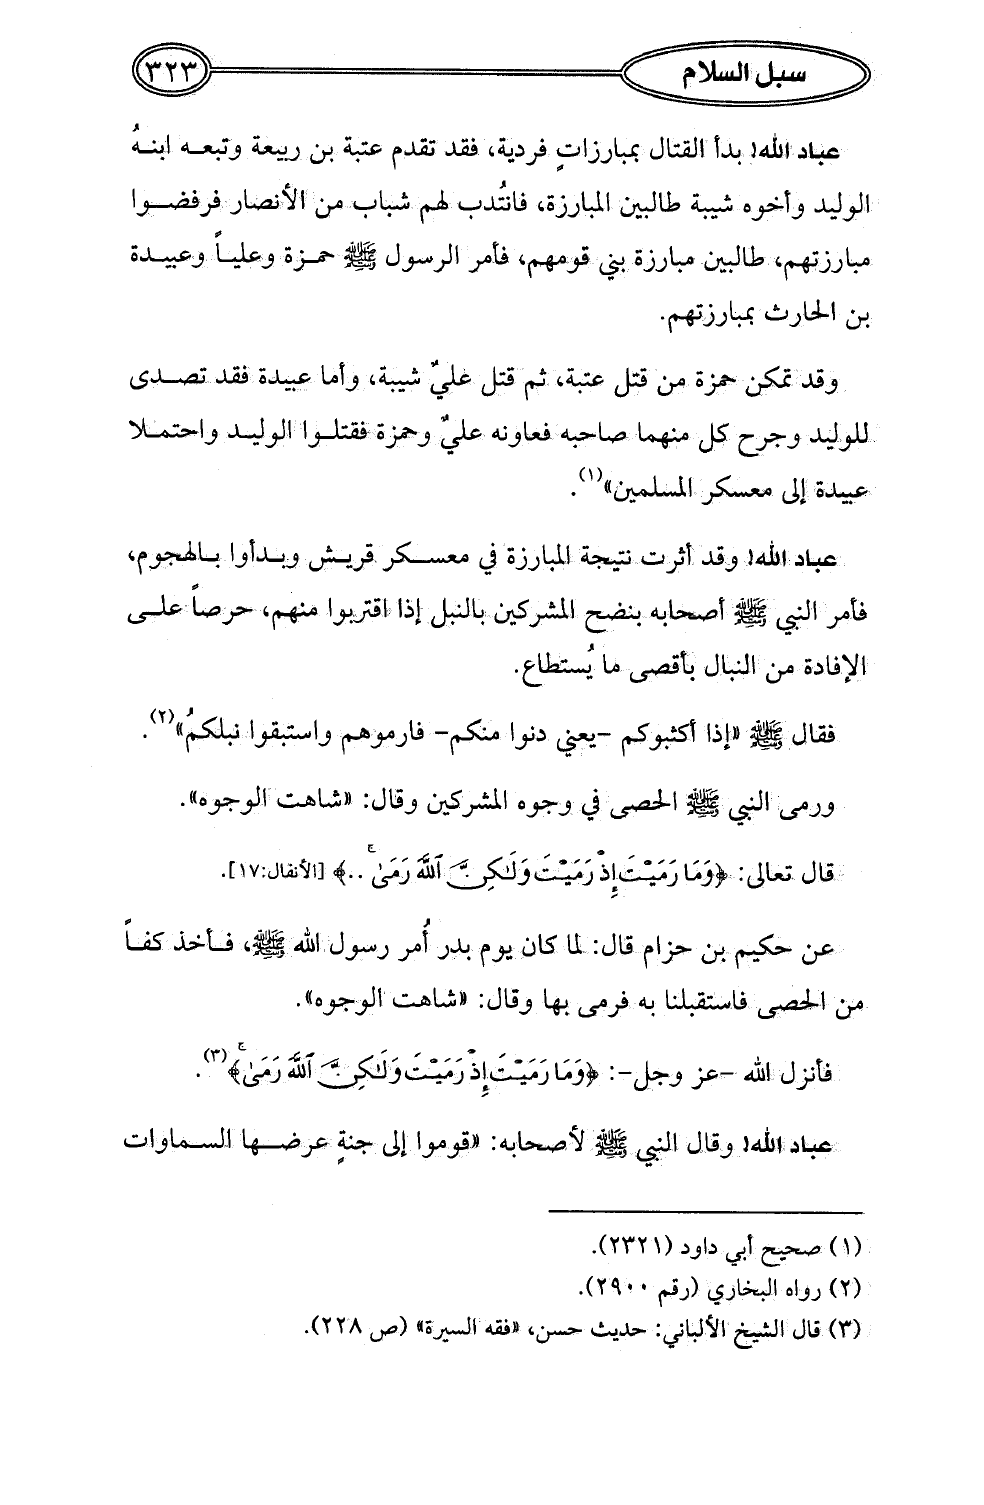 سبل السلام ٣٢٣
عباد الله! بدأ القتال بمبارزاتٍ فردية، فقد تقدم عتبة بن ربيعة وتبعه ابنهُ
الوليد وأخوه شيبة طالبين المبارزة، فانتُدب لهم شباب من الأنصار فرفضوا
مبارزتهم، طالبين مبارزة بني قومهم، فأمر الرسول ﷺ حمزة وعلياً وعبيدة
بن الحارث بمبارزتهم.
وقد تمكن حمزة من قتل عتبة، ثم قتل عليٌ شيبة، وأما عبيدة فقد تصدى
للوليد وجرح كل منهما صاحبه فعاونه عليٌ وحمزة فقتلوا الوليد واحتملا
عبيدة إلى معسكر المسلمين»(١).
عباد الله! وقد أثرت نتيجة المبارزة في معسكر قريش وبدأوا بالهجوم،
فأمر النبي ﷺ أصحابه بنضح المشركين بالنبل إذا اقتربوا منهم، حرصاً على
الإفادة من النبال بأقصى ما يُستطاع.
فقال ﷺ «إذا أكثبوكم -يعني دنوا منكم- فارموهم واستبقوا نبلكمُ»(٢).
ورمى النبي ﷺ الحصى في وجوه المشركين وقال: «شاهت الوجوه».
قال تعالى: ﴿وَمَا رَمَيْتَ إِذْ رَمَيْتَ وَلَٰكِنَّ ٱللَّهَ رَمَىٰ ۚ ..﴾ [الأنفال:١٧].
عن حكيم بن حزام قال: لما كان يوم بدر أُمر رسول الله ﷺ، فأخذ كفاً
من الحصى فاستقبلنا به فرمى بها وقال: «شاهت الوجوه».
فأنزل الله -عز وجل-: ﴿وَمَا رَمَيْتَ إِذْ رَمَيْتَ وَلَٰكِنَّ ٱللَّهَ رَمَىٰ ۚ﴾(٣).
عباد الله! وقال النبي ﷺ لأصحابه: «قوموا إلى جنةٍ عرضها السماوات
(١) صحيح أبي داود (٢٣٢١).
(٢) رواه البخاري (رقم ٢٩٠٠).
(٣) قال الشيخ الألباني: حديث حسن، «فقه السيرة» (ص ٢٢٨).